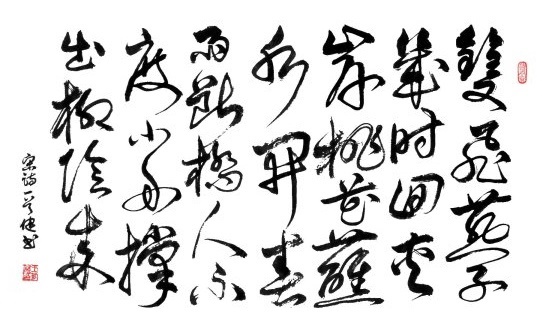 雙飛燕子
幾时回夾
岸桃花蘸
水開春
雨斷橋人不
度小舟撑
出柳陰來
宋詩一首健书